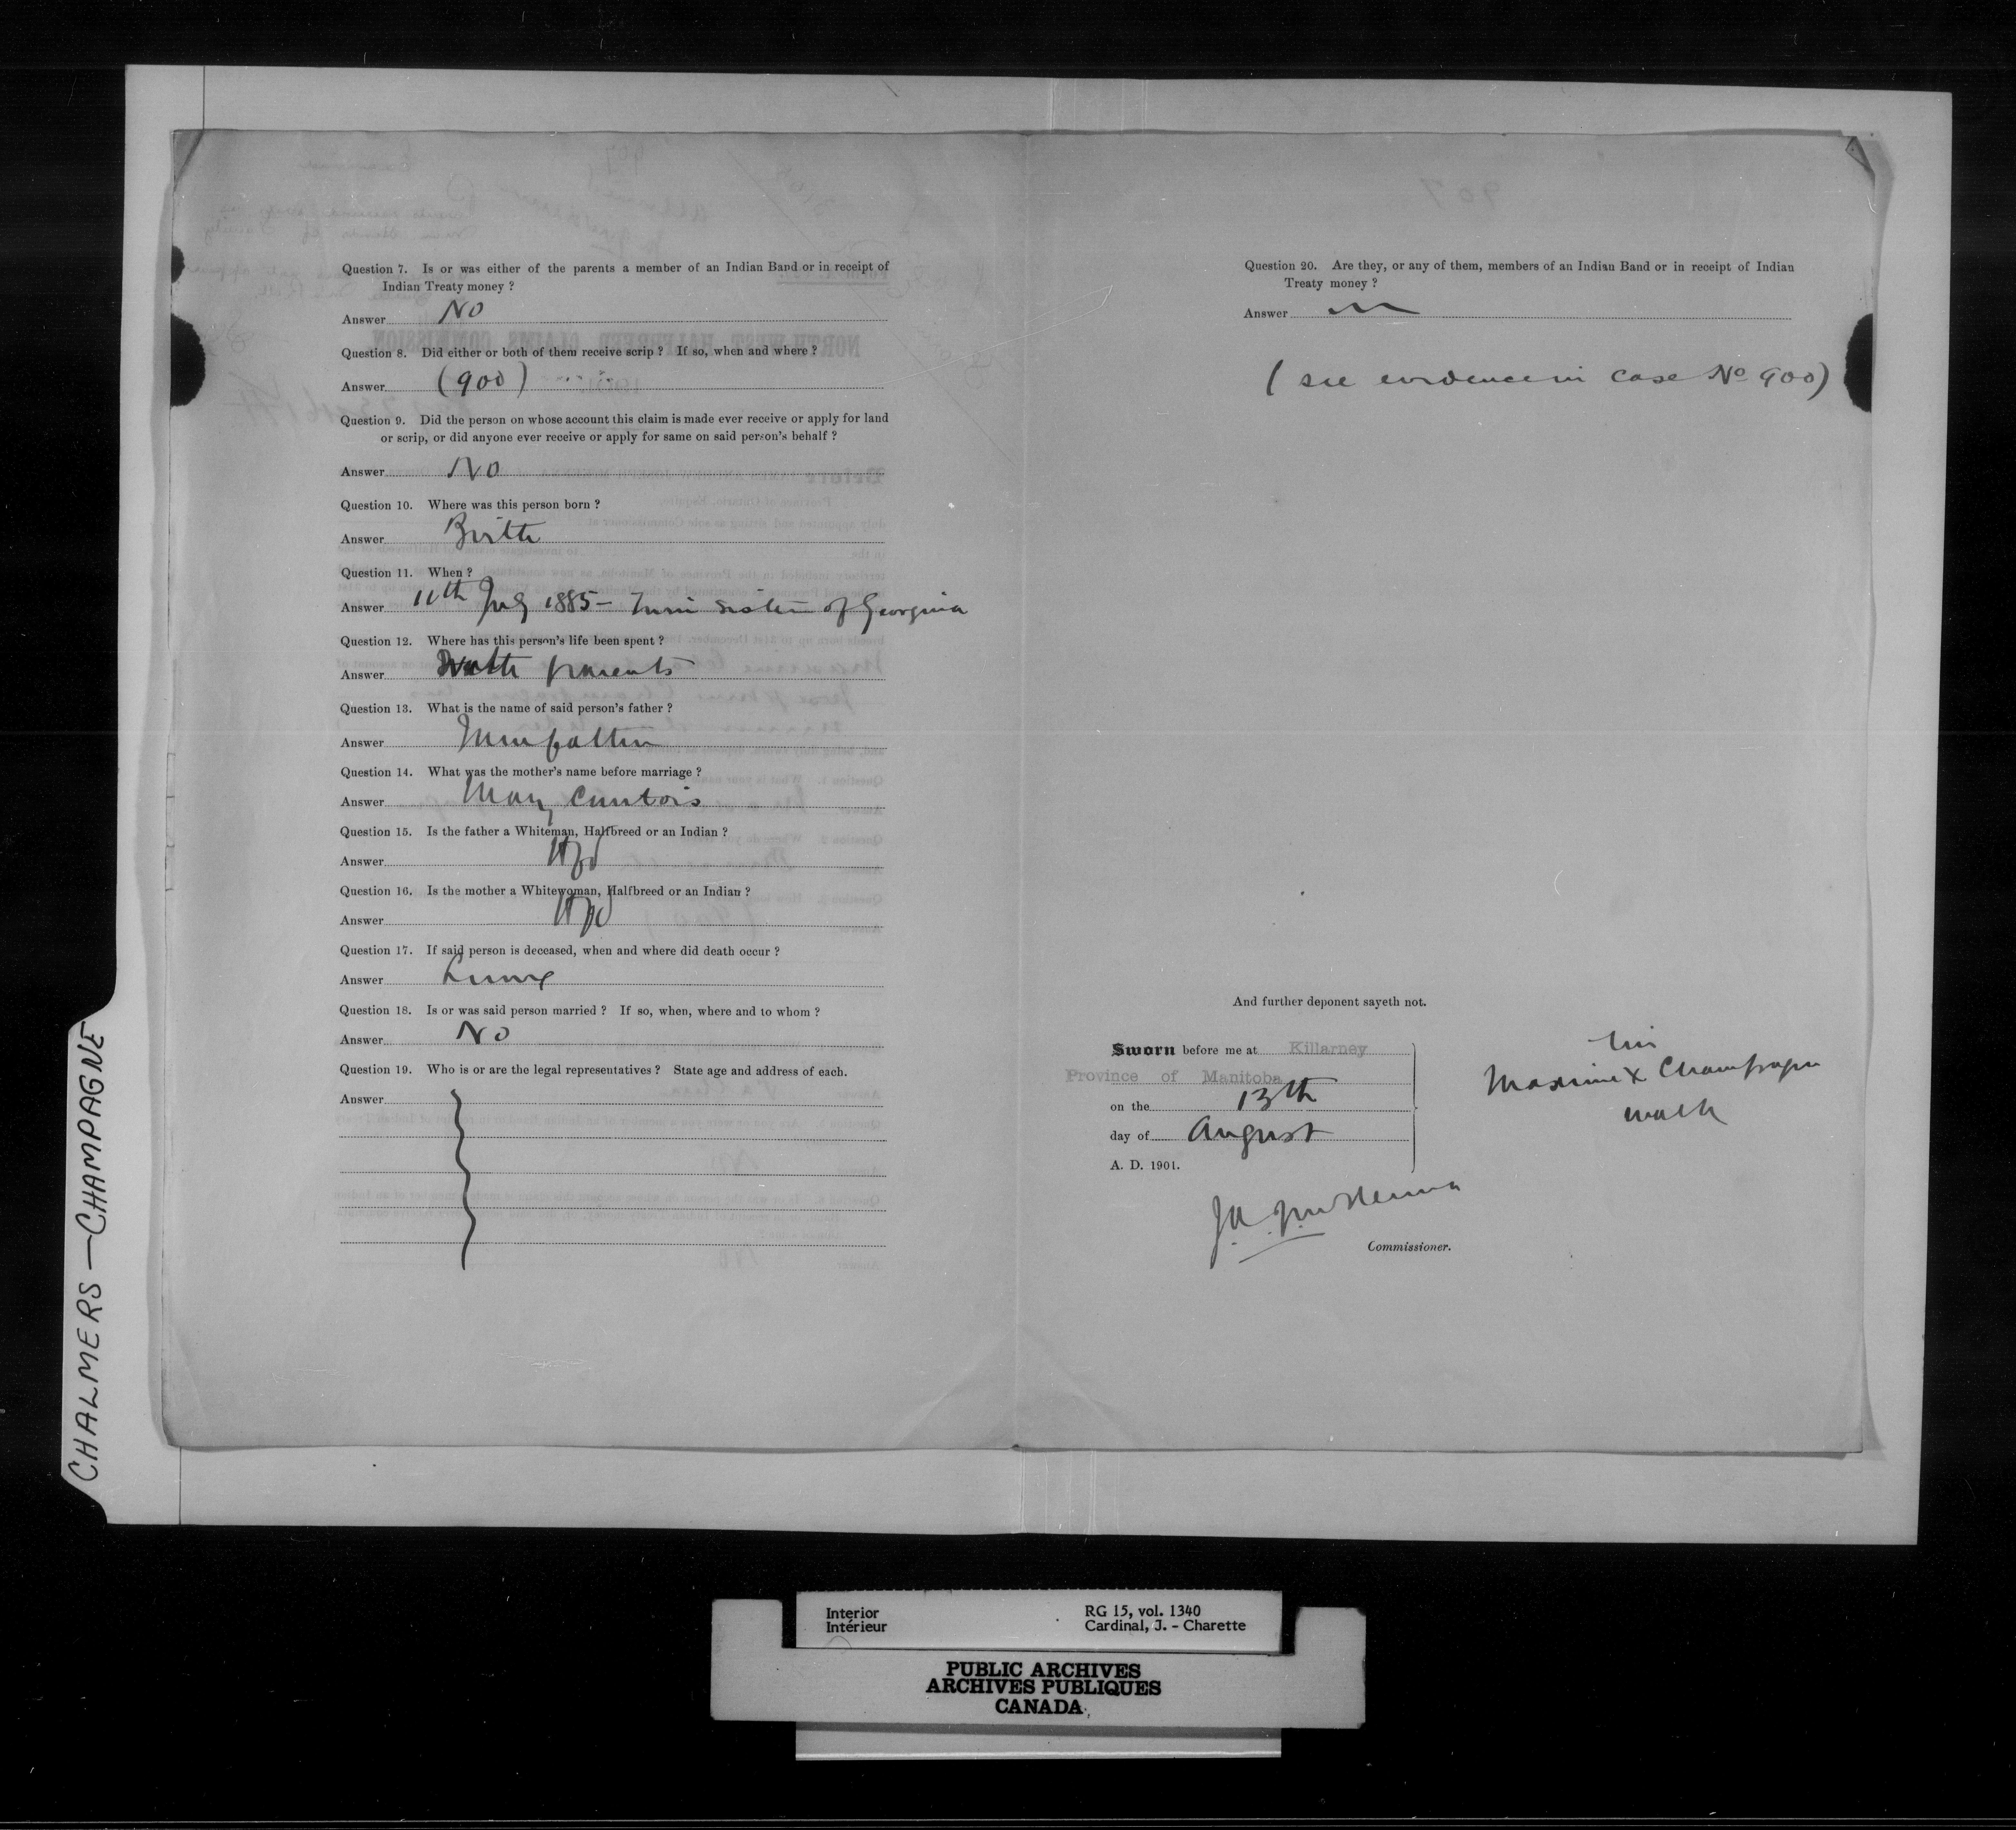 Question 7. Is or was either of the parents a member of an Indian Band or in receipt of
Indian Treaty money ?
Answer No
Question 8. Did either or both of them receive scrip ? If so, when and where ?
Answer (900)
Question 9. Did the person on whose account this claim is made ever receive or apply for land
or scrip, or did anyone ever receive or apply for same on said person's behalf ?
Answer No
Question 10. Where was this person born ?
Answer Birtle
Question 11. When ?
Answer 11th July 1885 - Twin sister of Georgina
Question 12. Where has this person's life been spent ?
Answer With parents
Question 13. What is the name of said person's father ?
Answer
Question 14. What was the mother's name before marriage ?
Answer Mary Contois
Question 15. Is the father a Whiteman, Halfbreed or an Indian ?
Answer Hfbd
Question 16. Is the mother a Whitewoman, Halfbreed or an Indian ?
Answer Hfbd
Question 17. If said person is deceased, when and where did death occur ?
Answer Living
Question 18. Is or was said person married ? If so, when, where and to whom ?
Answer No
Question 19. Who is or are the legal representatives ? State age and address of each.
Answer
Question 20. Are they, or any of them, members of an Indian Band or in receipt of Indian
Treaty money ?
Answer
(see evidence in case No 900)
And further deponent sayeth not.
Sworn before me at Killarney
Province of Manitoba
on the 13th
day of August
A. D. 1901.
his
Maxime X Champagne
mark
J.A. McKenna
Commissioner.
CHALMERS - CHAMPAGNE
Interior
Intérieur
RG 15, vol. 1340
Cardinal, J. - Charette
PUBLIC ARCHIVES
ARCHIVES PUBLIQUES
CANADA